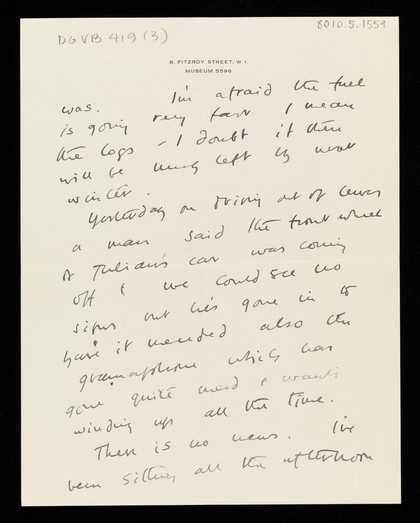 DGVB 419 (3)
8010.5.1559
8, FITZROY STREET, W 1.
MUSEUM 5596
was. I'm afraid the fuel
is going very fast I mean
the logs – I doubt if there
will be much left by next
winter.
Yesterday on driving out of Lewes
a man said the front wheel
of Julian's car was coming
off & we could see no
signs but he's gone in to
have it mended also the
gramophone which has
gone quite mad & wants
winding up all the time.
There is no news. I've
been sitting all the afternoon